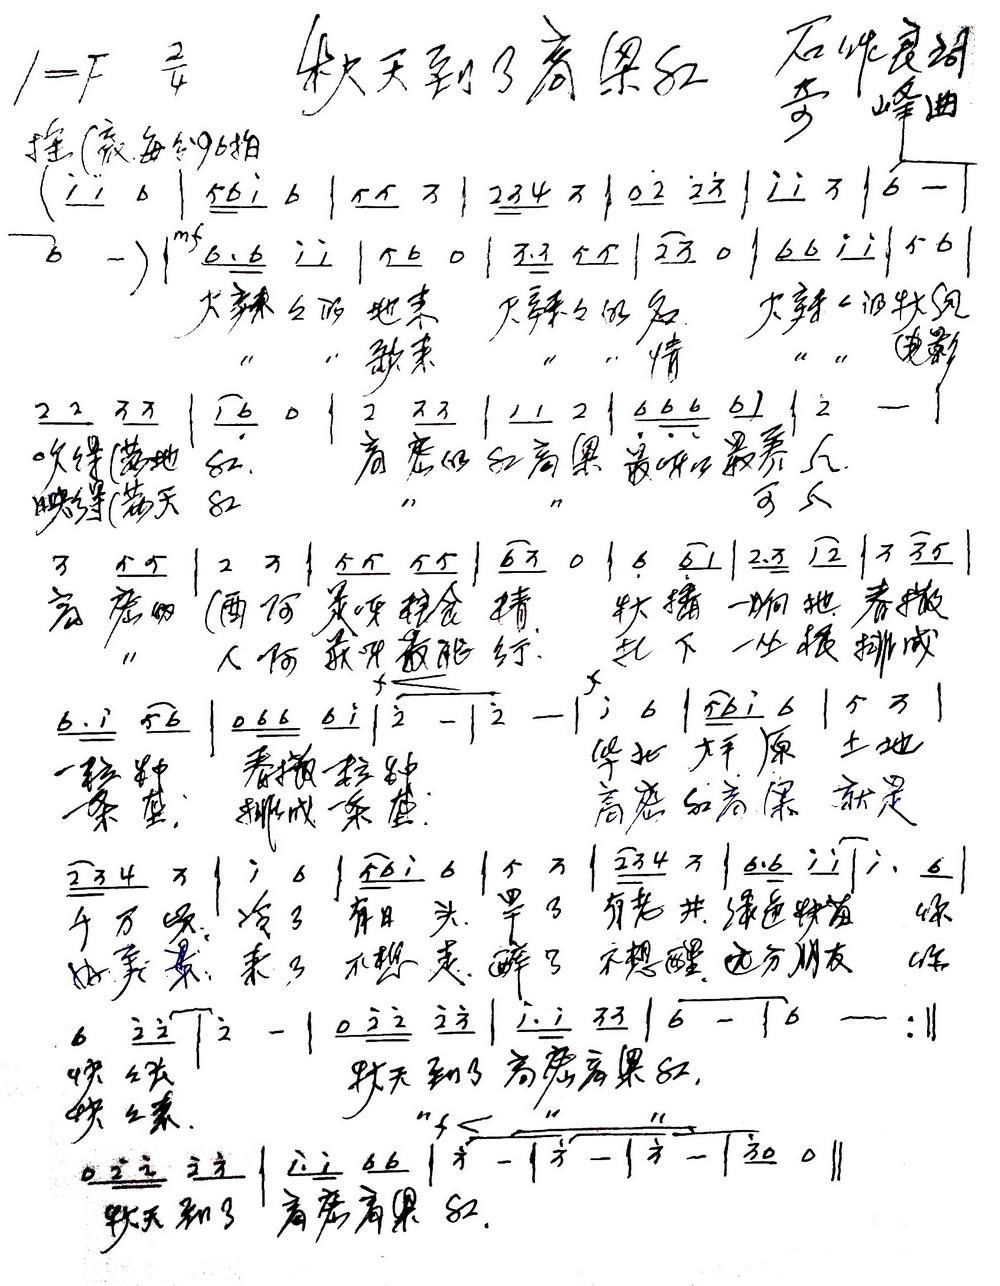 1=F 2/4 秋天到了高粱红 石作良词
峰曲
摇滚 每分96拍
(i̇i̇ 6 | 56i̇ 6 | 55 3 | 234 3 | 02̇ 2̇3̇ | i̇i̇ 3 | 6 — |
6 —) | mf 6·6 i̇i̇ | 56 0 | 3·3 55 | 23 0 | 66 i̇i̇ | 56 |
火辣々的 地来 火辣々的 名 火辣々的秋风
〃 〃 歌来 〃 〃 情 〃 〃 电影
22 33 | 16 0 | 2 33 | 11 2 | 666 61 | 2 — |
吹得(那)满地 红. 高密的红高粱 最呀么最养人.
映得(那)满天 红 〃 〃 可人
3 55 | 2 3 | 55 55 | 63 0 | 6 61 | 2·3 12 | 3 35 |
高密的 (酒阿 灵呀 精 秋播 一垧地 春撒
〃 人阿 最呀最 行. 扎下 一坐根 排成
6·i̇ 56 | 066 6i̇ | f 2̇ — | 2̇ — | f i̇ 6 | 56i̇ 6 | 5 3 |
一粒种 春撒一粒种 华北 大平原 土地
一条垄; 排成一条垄; 高密红高粱 就是
234 3 | i̇ 6 | 56i̇ 6 | 5 3 | 234 3 | 6·6 i̇i̇ | i̇· 6 |
千万顷. 冷了 有日头. 旱了 有老井. 绿色秧苗 你
好美景. 来了 不想走. 醉了 不想醒. 远方朋友 你
6 2̇2̇ | 2̇ — | 0 2̇2̇ 2̇3̇ | i̇·i̇ 33 | 6 — | 6 — :‖
快々长 秋天到了高密高粱红.
快々来.
〃 f 〃 〃
0 2̇2̇ 2̇3̇ | i̇·i̇ 66 | 3̇ — | 3̇ — | 3̇ — | 3̇0 0 ‖
秋天到了 高密高粱红.